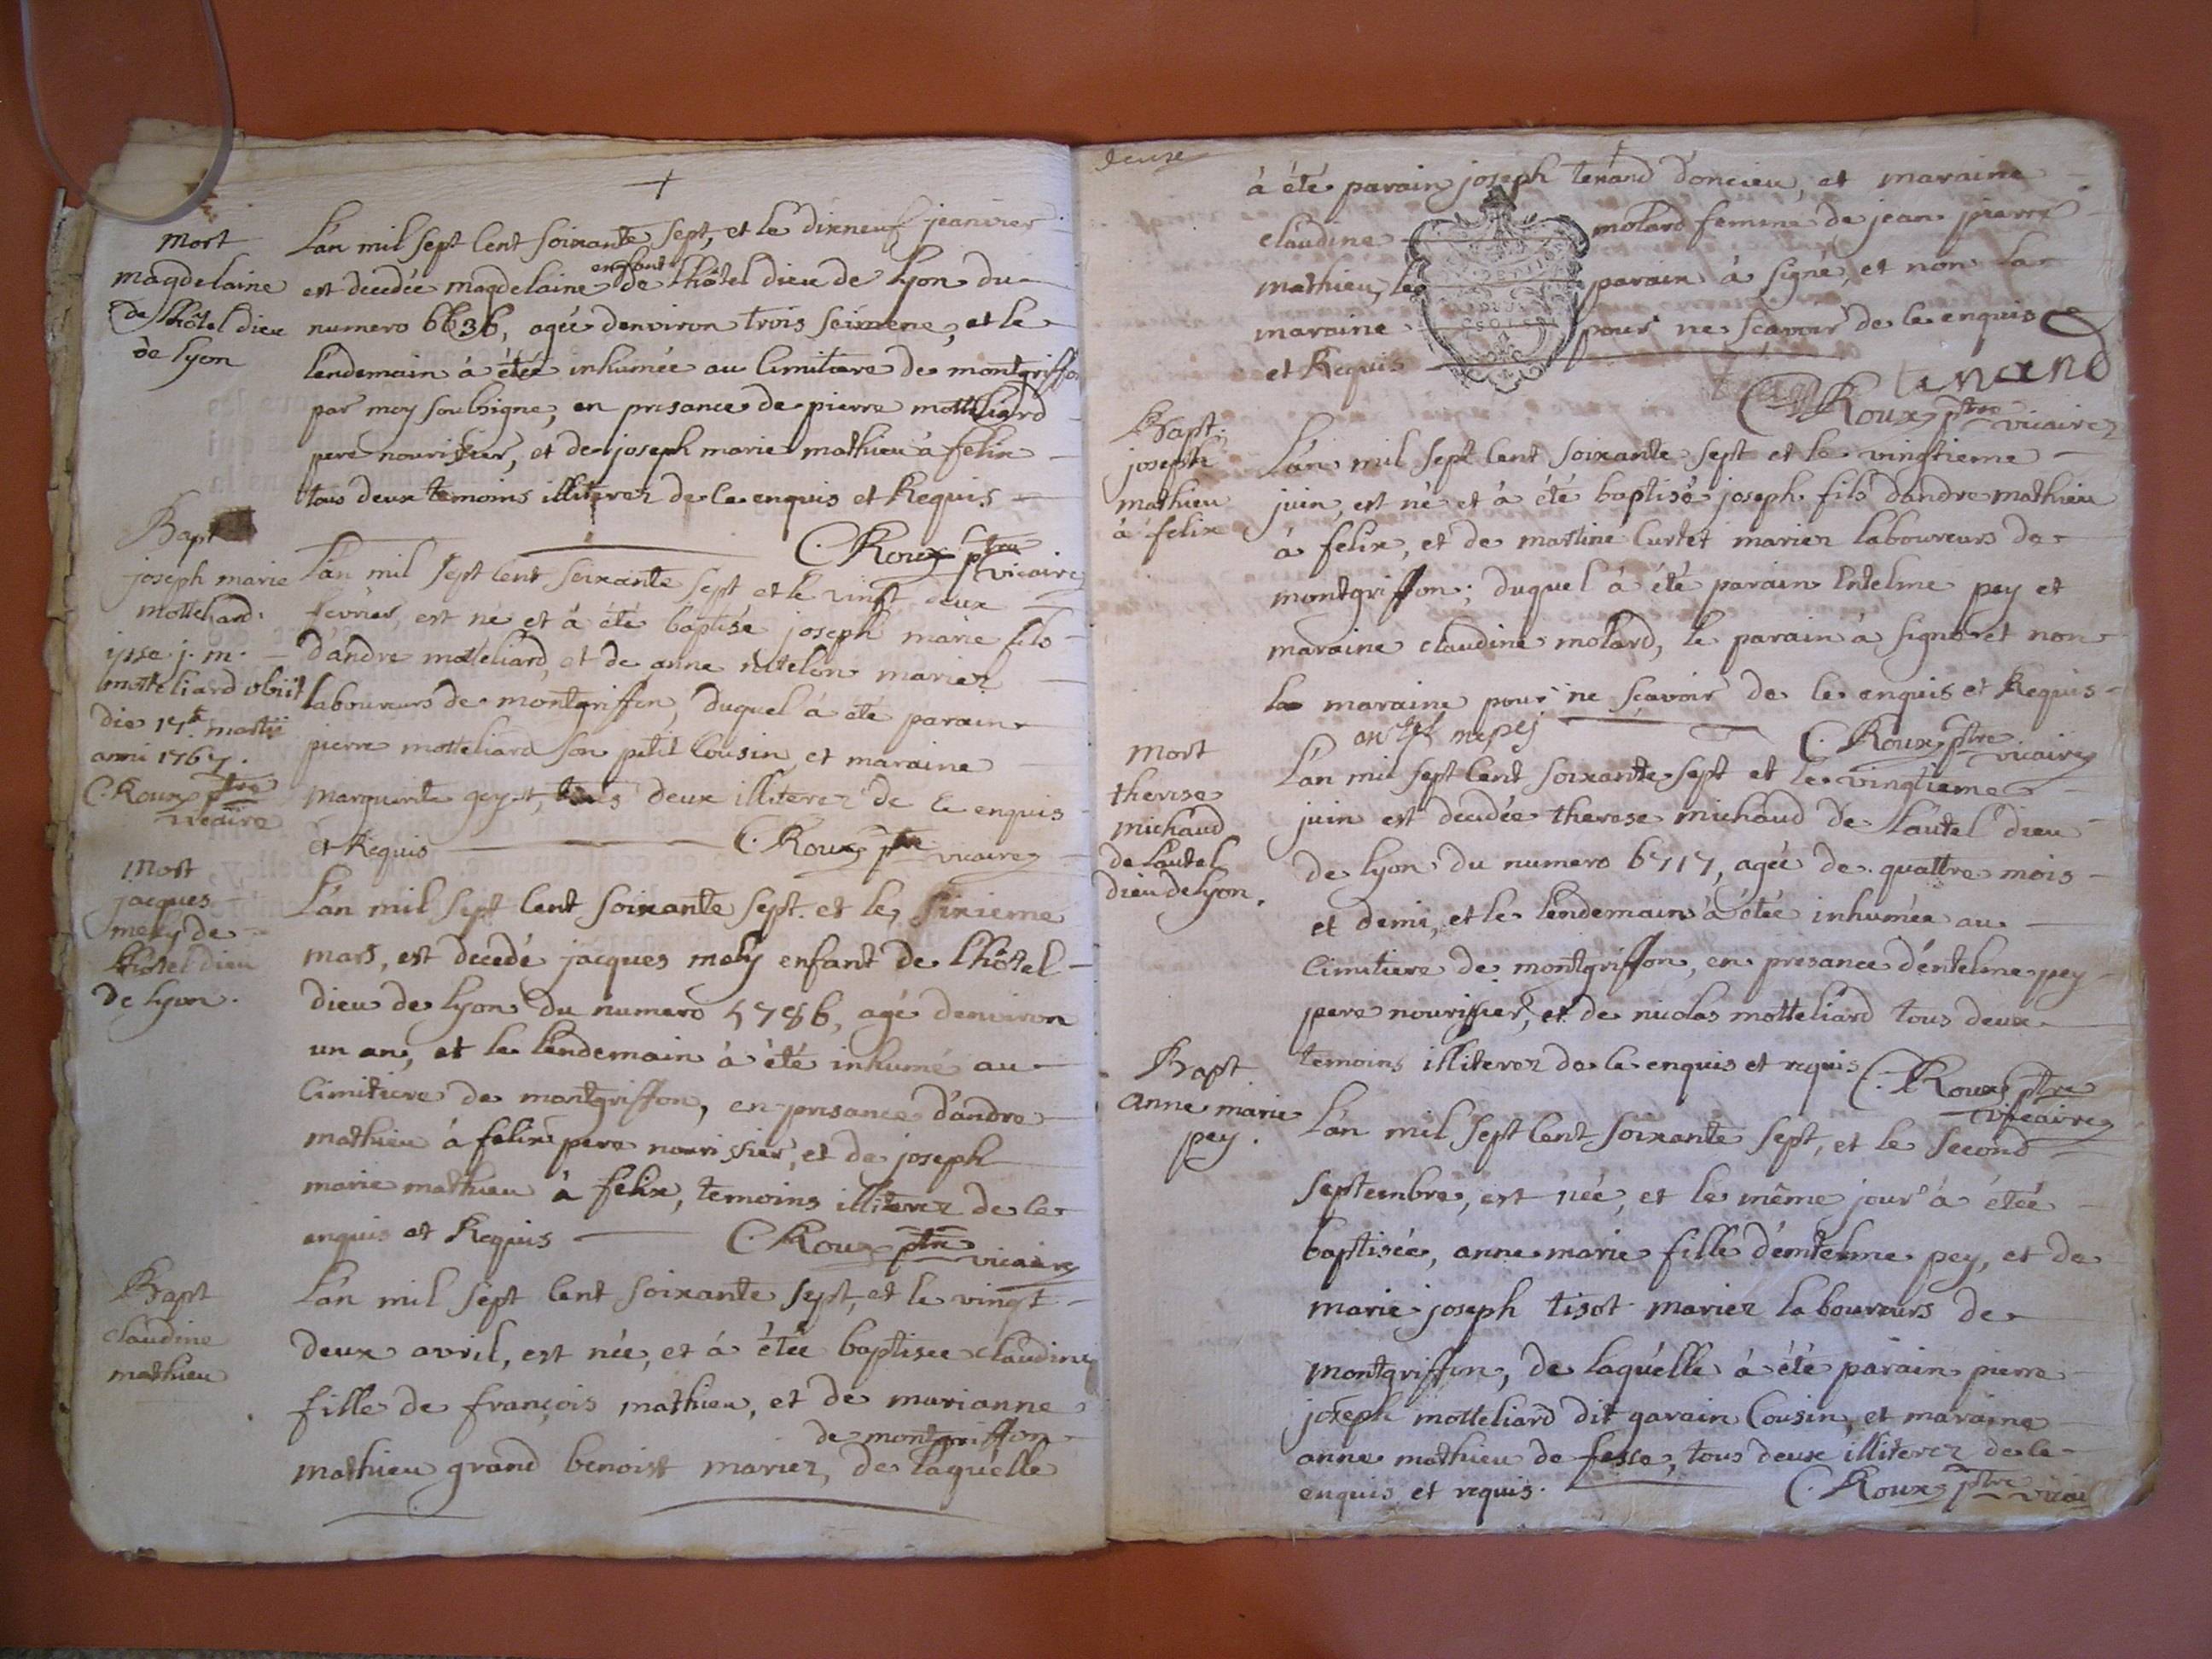 mort
magdelaine
de lhôtel dieu
de lyon
L'an mil sept cent soixante sept, et le dixneuf jeanvier
est decedée magdelaine enfant de lhôtel dieu de lyon du
numero 6636, agée denviron trois seimene, et le
lendemain à étée inhumée au cimitiere de montgriffon
par moy soubsigne, en presance de pierre motteliard
pere nourissier, et de joseph marie mathieu à felix
tous deux temoins illiterez de ce enquis et Requis
C. Roux ptre vicaire
Bapt
joseph marie
motteliard
ipse j. m.
motteliard obiit
die 17ª martii
anni 1767.
C. Roux ptre
vicaire
L'an mil sept cent soixante sept et le vingt deux
fevrier, est né et à été baptisé joseph marie fils
d'andre motteliard, et de anne mariez
laboureurs de montgriffon, duquel à été parain
pierre motteliard son petit cousin, et maraine
marguerite tous deux illiterez de ce enquis
et Requis C. Roux ptre vicaire
mort
jacques
mely de
lhôtel dieu
de lyon.
L'an mil sept cent soixante sept. et le sixieme
mars, est decedé jacques mely enfant de lhôtel
dieu de lyon du numero 5786, agé denviron
un an, et le lendemain à été inhumé au
cimitiere de montgriffon, en presance d'andre
mathieu à felix pere nourissier, et de joseph
marie mathieu à felix, temoins illiterez de ce
enquis et Requis C. Roux ptre vicaire
Bapt
claudine
mathieu
L'an mil sept cent soixante sept, et le vingt
deux avril, est née, et à étée baptisée claudine
fille de françois mathieu, et de marianne
de montgriffon
mathieu grand benoist mariez, de laquelle
deuxe
à été parain joseph tenand d'oncieu, et maraine
claudine molard femme de jean pierre
mathieu, le parain à signé, et non la
maraine pour ne sçavoir de ce enquis
et Requis
tenand
C. Roux ptre vicaire
Bapt.
joseph
mathieu
à felix
L'an mil sept cent soixante sept et le vingtieme
juin, est né et à été baptisé joseph fils dandre mathieu
à felix, et de martine Curtet mariez laboureurs de
montgriffon; duquel à été parain Entelme pey et
maraine claudine molard, le parain à signé et non
la maraine pour ne sçavoir de ce enquis et Requis
C. Roux ptre vicaire
mort
therese
michaud
de Lautel
dieu de lyon.
L'an mil sept cent soixante sept et le vingtieme
juin est decedée therese michaud de Lautel dieu
de lyon du numero 6717, agée de quattre mois
et demi, et le lendemain à étée inhumée au
cimitiere de montgriffon, en presance d'entelme pey
pere nourissier, et de nicolas motteliard tous deux
temoins illiterez de ce enquis et requis C. Roux ptre
vicaire
Bapt
anne marie
pey.
L'an mil sept cent soixante sept, et le second
septembre, est née, et le même jour à étée
baptisée, anne marie fille d'emtelme pey, et de
marie joseph tisot mariez laboureurs de
montgriffon, de laquelle à été parain pierre
joseph motteliard dit garain Cousin, et maraine
anne mathieu de fesse, tous deux illiterez de ce
enquis et requis. C. Roux ptre vicai